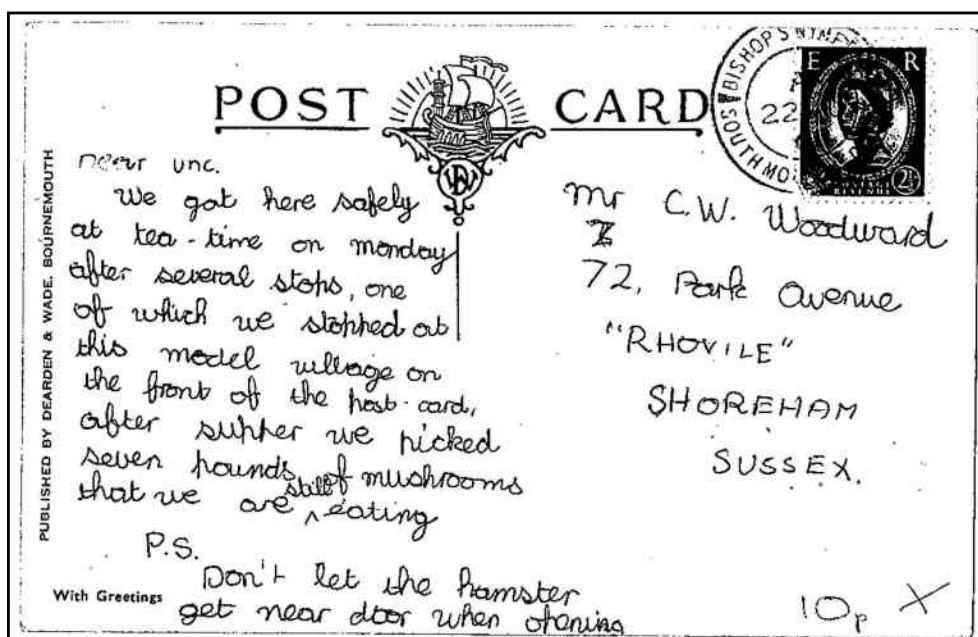 POST CARD
SOUTHMO BISHOP'S NYMP
22
E R
POSTAGE REVENUE 2½
PUBLISHED BY DEARDEN & WADE, BOURNEMOUTH
Dear unc.
We got here safely
at tea-time on monday
after several stops, one
of which we stopped at
this model village on
the front of the post-card,
after supper we picked
seven pounds of mushrooms
that we are still eating
P.S.
Don't let the hamster
get near door when opening
With Greetings
Mr C.W. Woodward
72, Park Avenue
"RHOVILE"
SHOREHAM
SUSSEX.
10p X